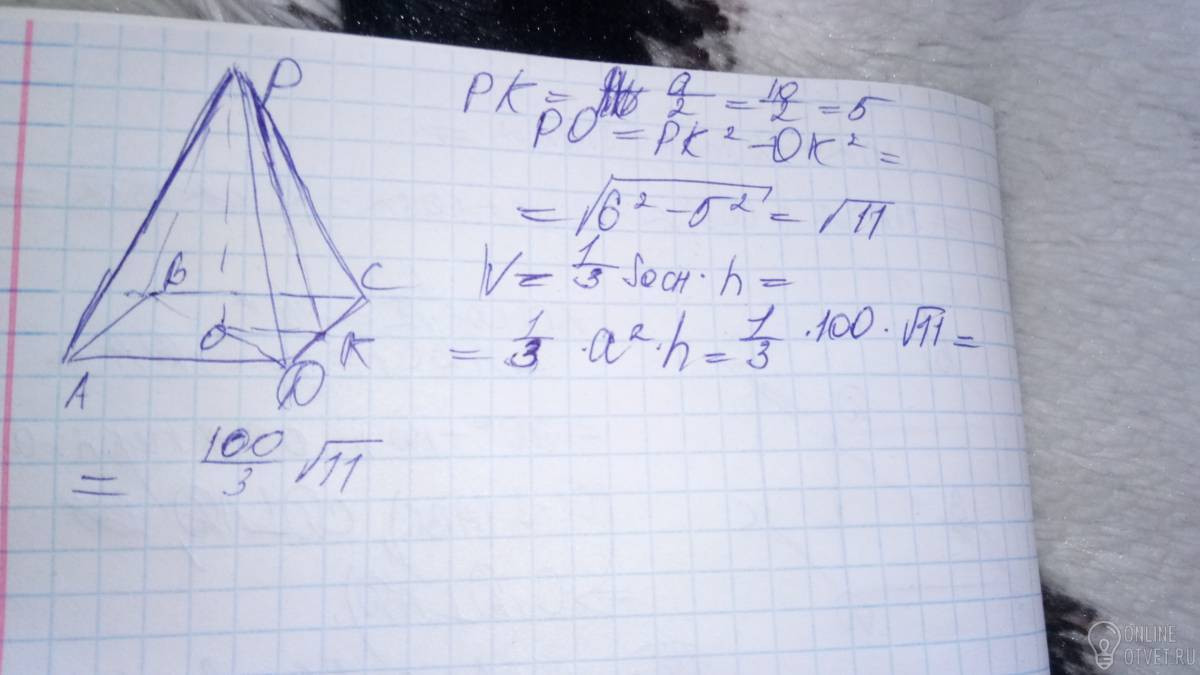 P
B
C
O
K
A
D
PK = a/2 = 10/2 = 5
PO = PK² - OK² =
= √6² - 5² = √11
V = 1/3 Sосн · h =
= 1/3 · a² · h = 1/3 · 100 · √11 =
= 100/3 √11
ONLINE
OTVET.RU